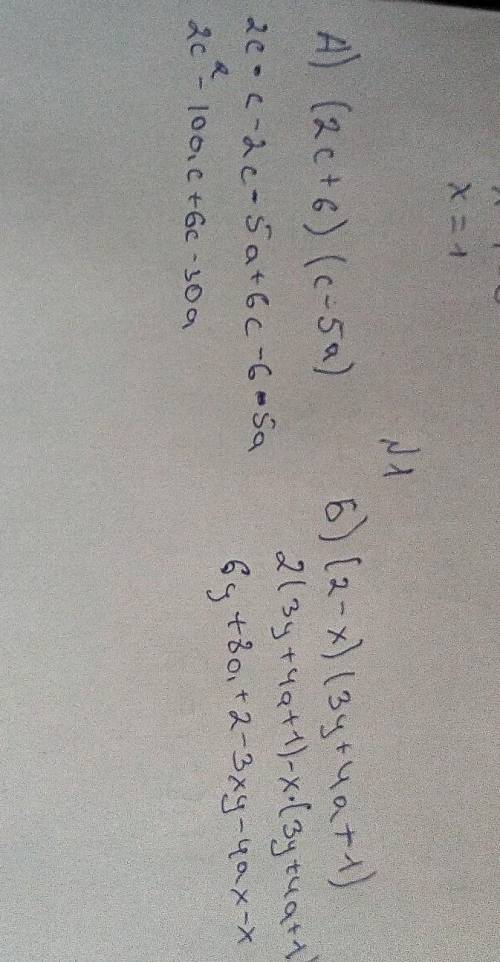 x = 1
№1
А) (2c+6) (c-5a)
2c·c-2c·5a+6c-6·5a
2c²-10a,c+6c-30a
Б) (2-x) (3y+4a+1)
2(3y+4a+1)-x·(3y+4a+1)
6y+8a,+2-3xy-4ax-x